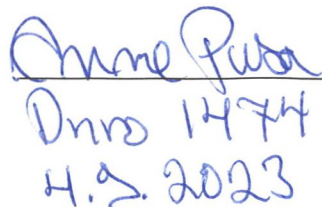 Anne Pusa
Dnro 1474
4.9.2023